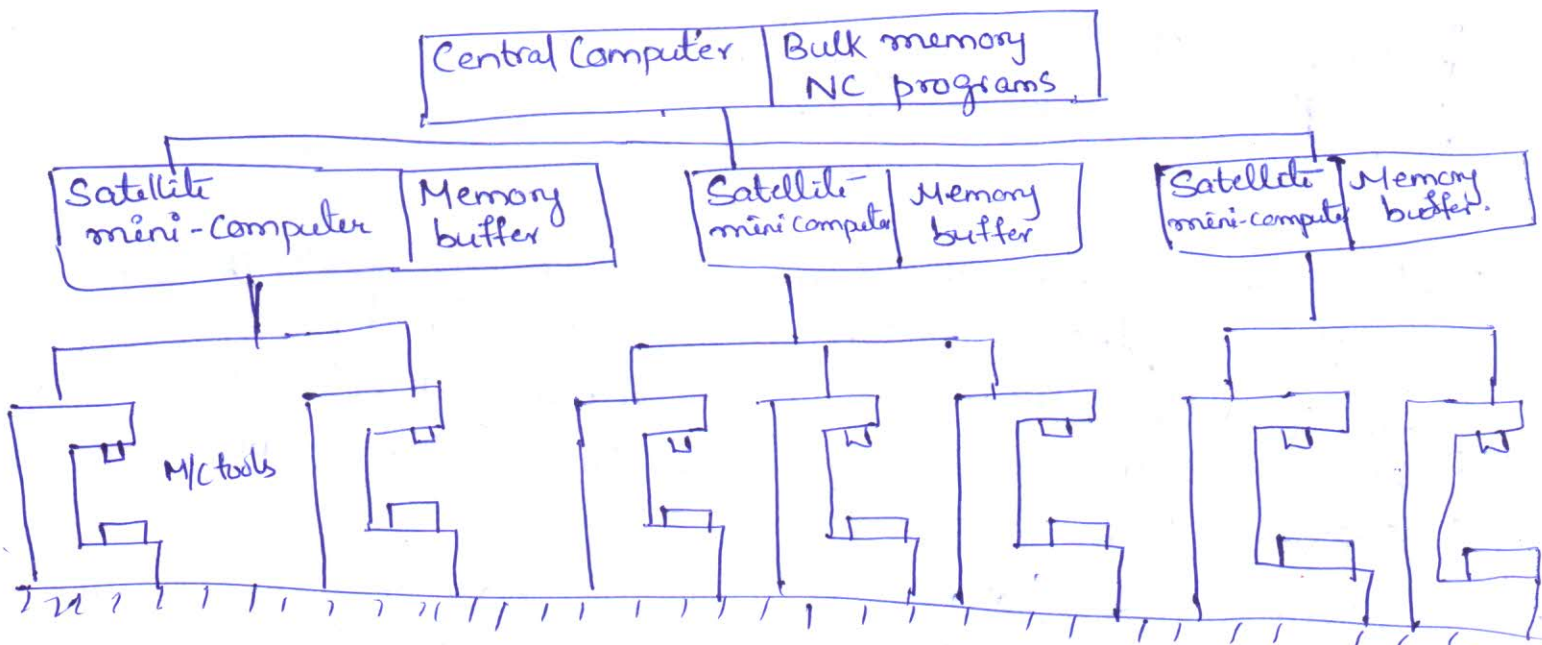 Central Computer
Bulk memory
NC programs.
Satellite
mini-computer
Memory
buffer
Satellite
mini computer
Memory
buffer
Satellite
mini-compute
Memory
buffer.
M/C tools